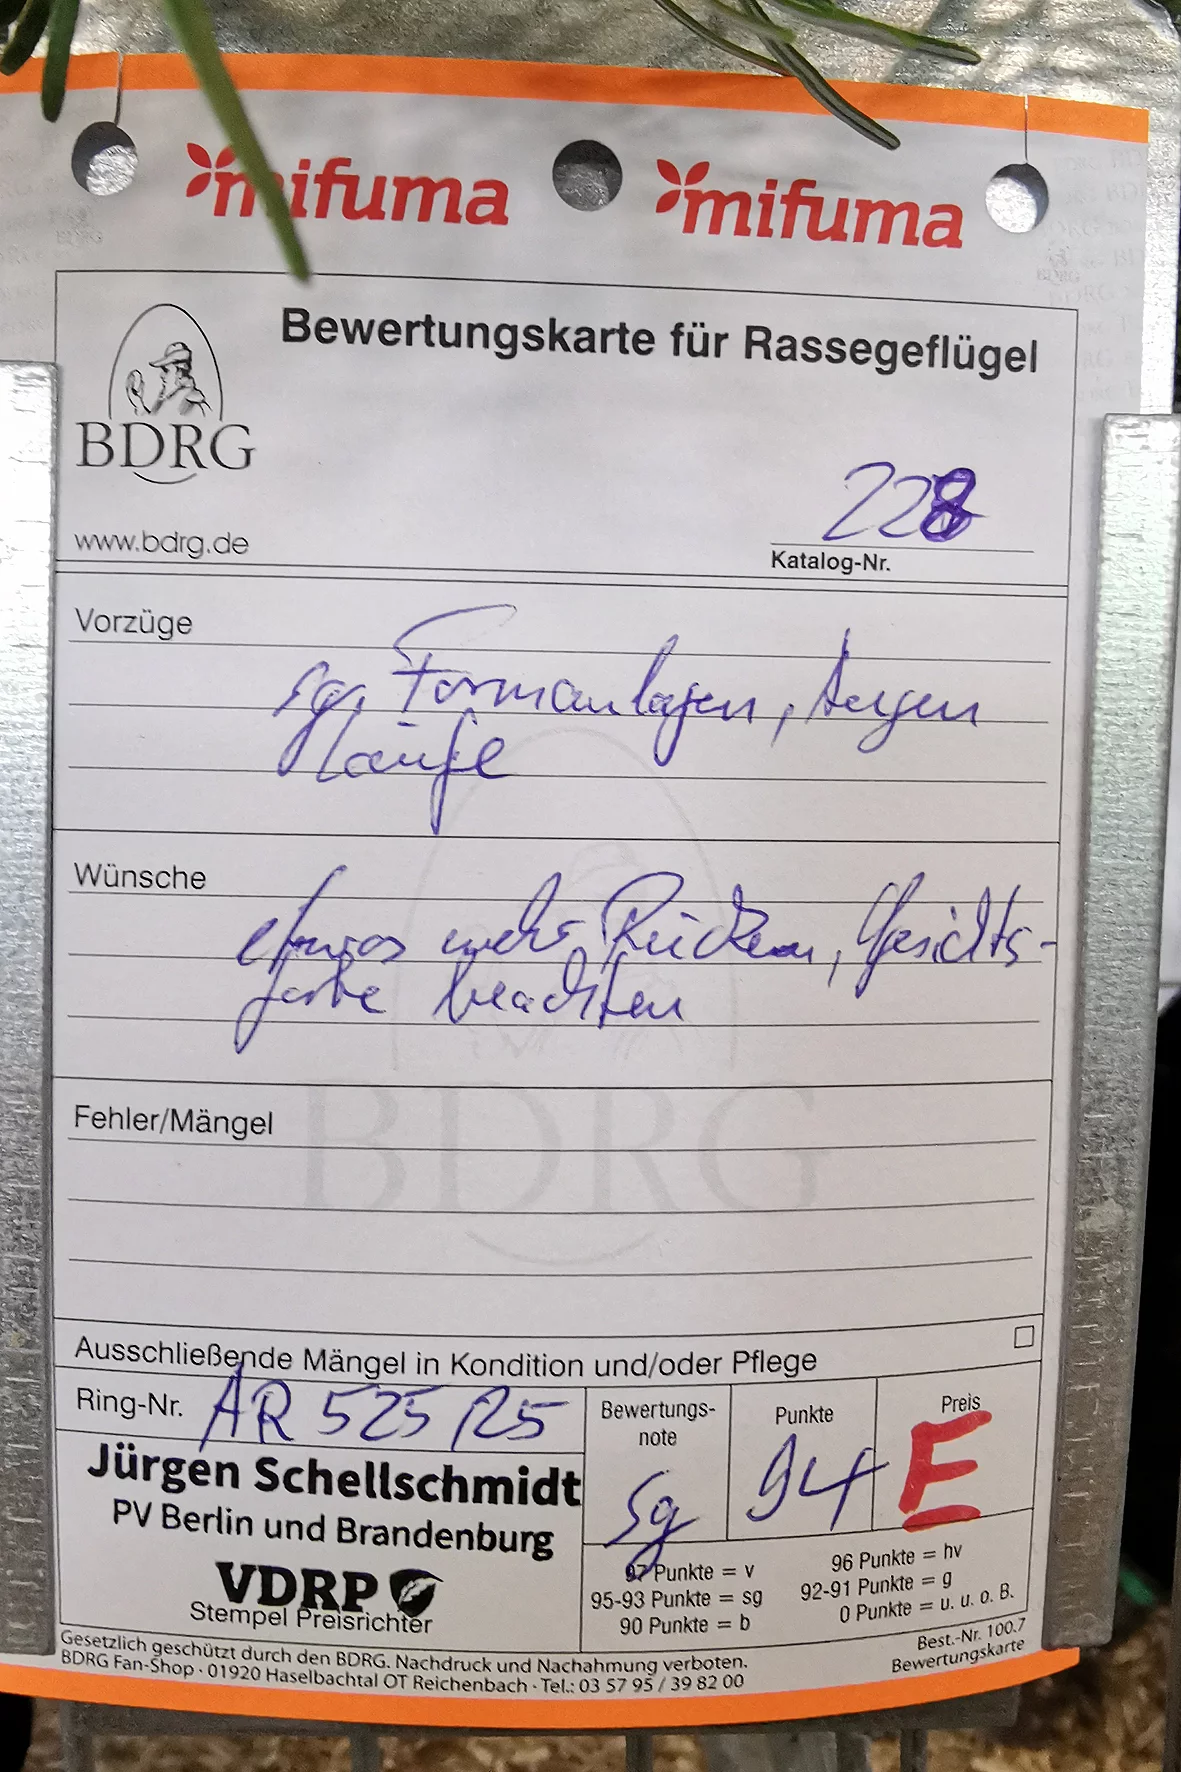 mifuma mifuma
Bewertungskarte für Rassegeflügel
BDRG
www.bdrg.de
228
Katalog-Nr.
Vorzüge
sg. Formanlagen, Augen
Läufe
Wünsche
etwas mehr Rücken, Gesichts-
farbe beachten
Fehler/Mängel
BDRG
Ausschließende Mängel in Kondition und/oder Pflege
Ring-Nr. AR 525 /25
Jürgen Schellschmidt
PV Berlin und Brandenburg
VDRP
Stempel Preisrichter
Bewertungs-
note
Sg
Punkte
94
Preis
E
97 Punkte = v
95-93 Punkte = sg
90 Punkte = b
96 Punkte = hv
92-91 Punkte = g
0 Punkte = u. u. o. B.
Gesetzlich geschützt durch den BDRG. Nachdruck und Nachahmung verboten.
BDRG Fan-Shop · 01920 Haselbachtal OT Reichenbach · Tel.: 03 57 95 / 39 82 00
Best.-Nr. 100.7
Bewertungskarte